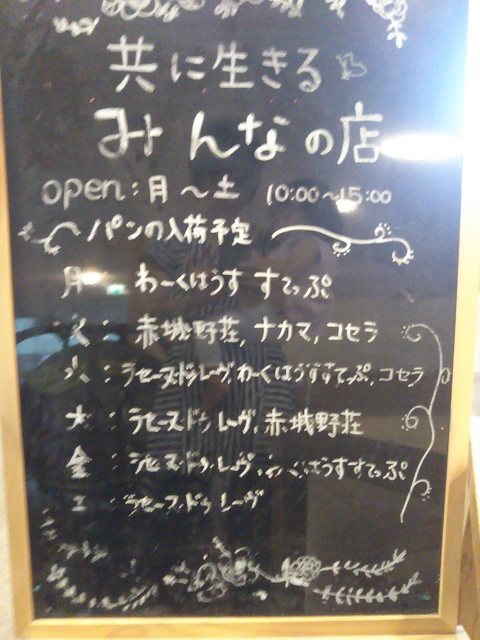 共に生きる
みんなの店
open:月～土 10:00～15:00
パンの入荷予定
月 わーくはうすすてっぷ
火: 赤城野荘,ナカマ,コセラ
水: ラセーヌ・ドゥ・レーヴ,わーくはうすすてっぷ,コセラ
木: ラセーヌ・ドゥ・レーヴ,赤城野荘
金: ラセーヌ・ドゥ・レーヴ,わーくはうすすてっぷ
土: ラセーヌ・ドゥ・レーヴ